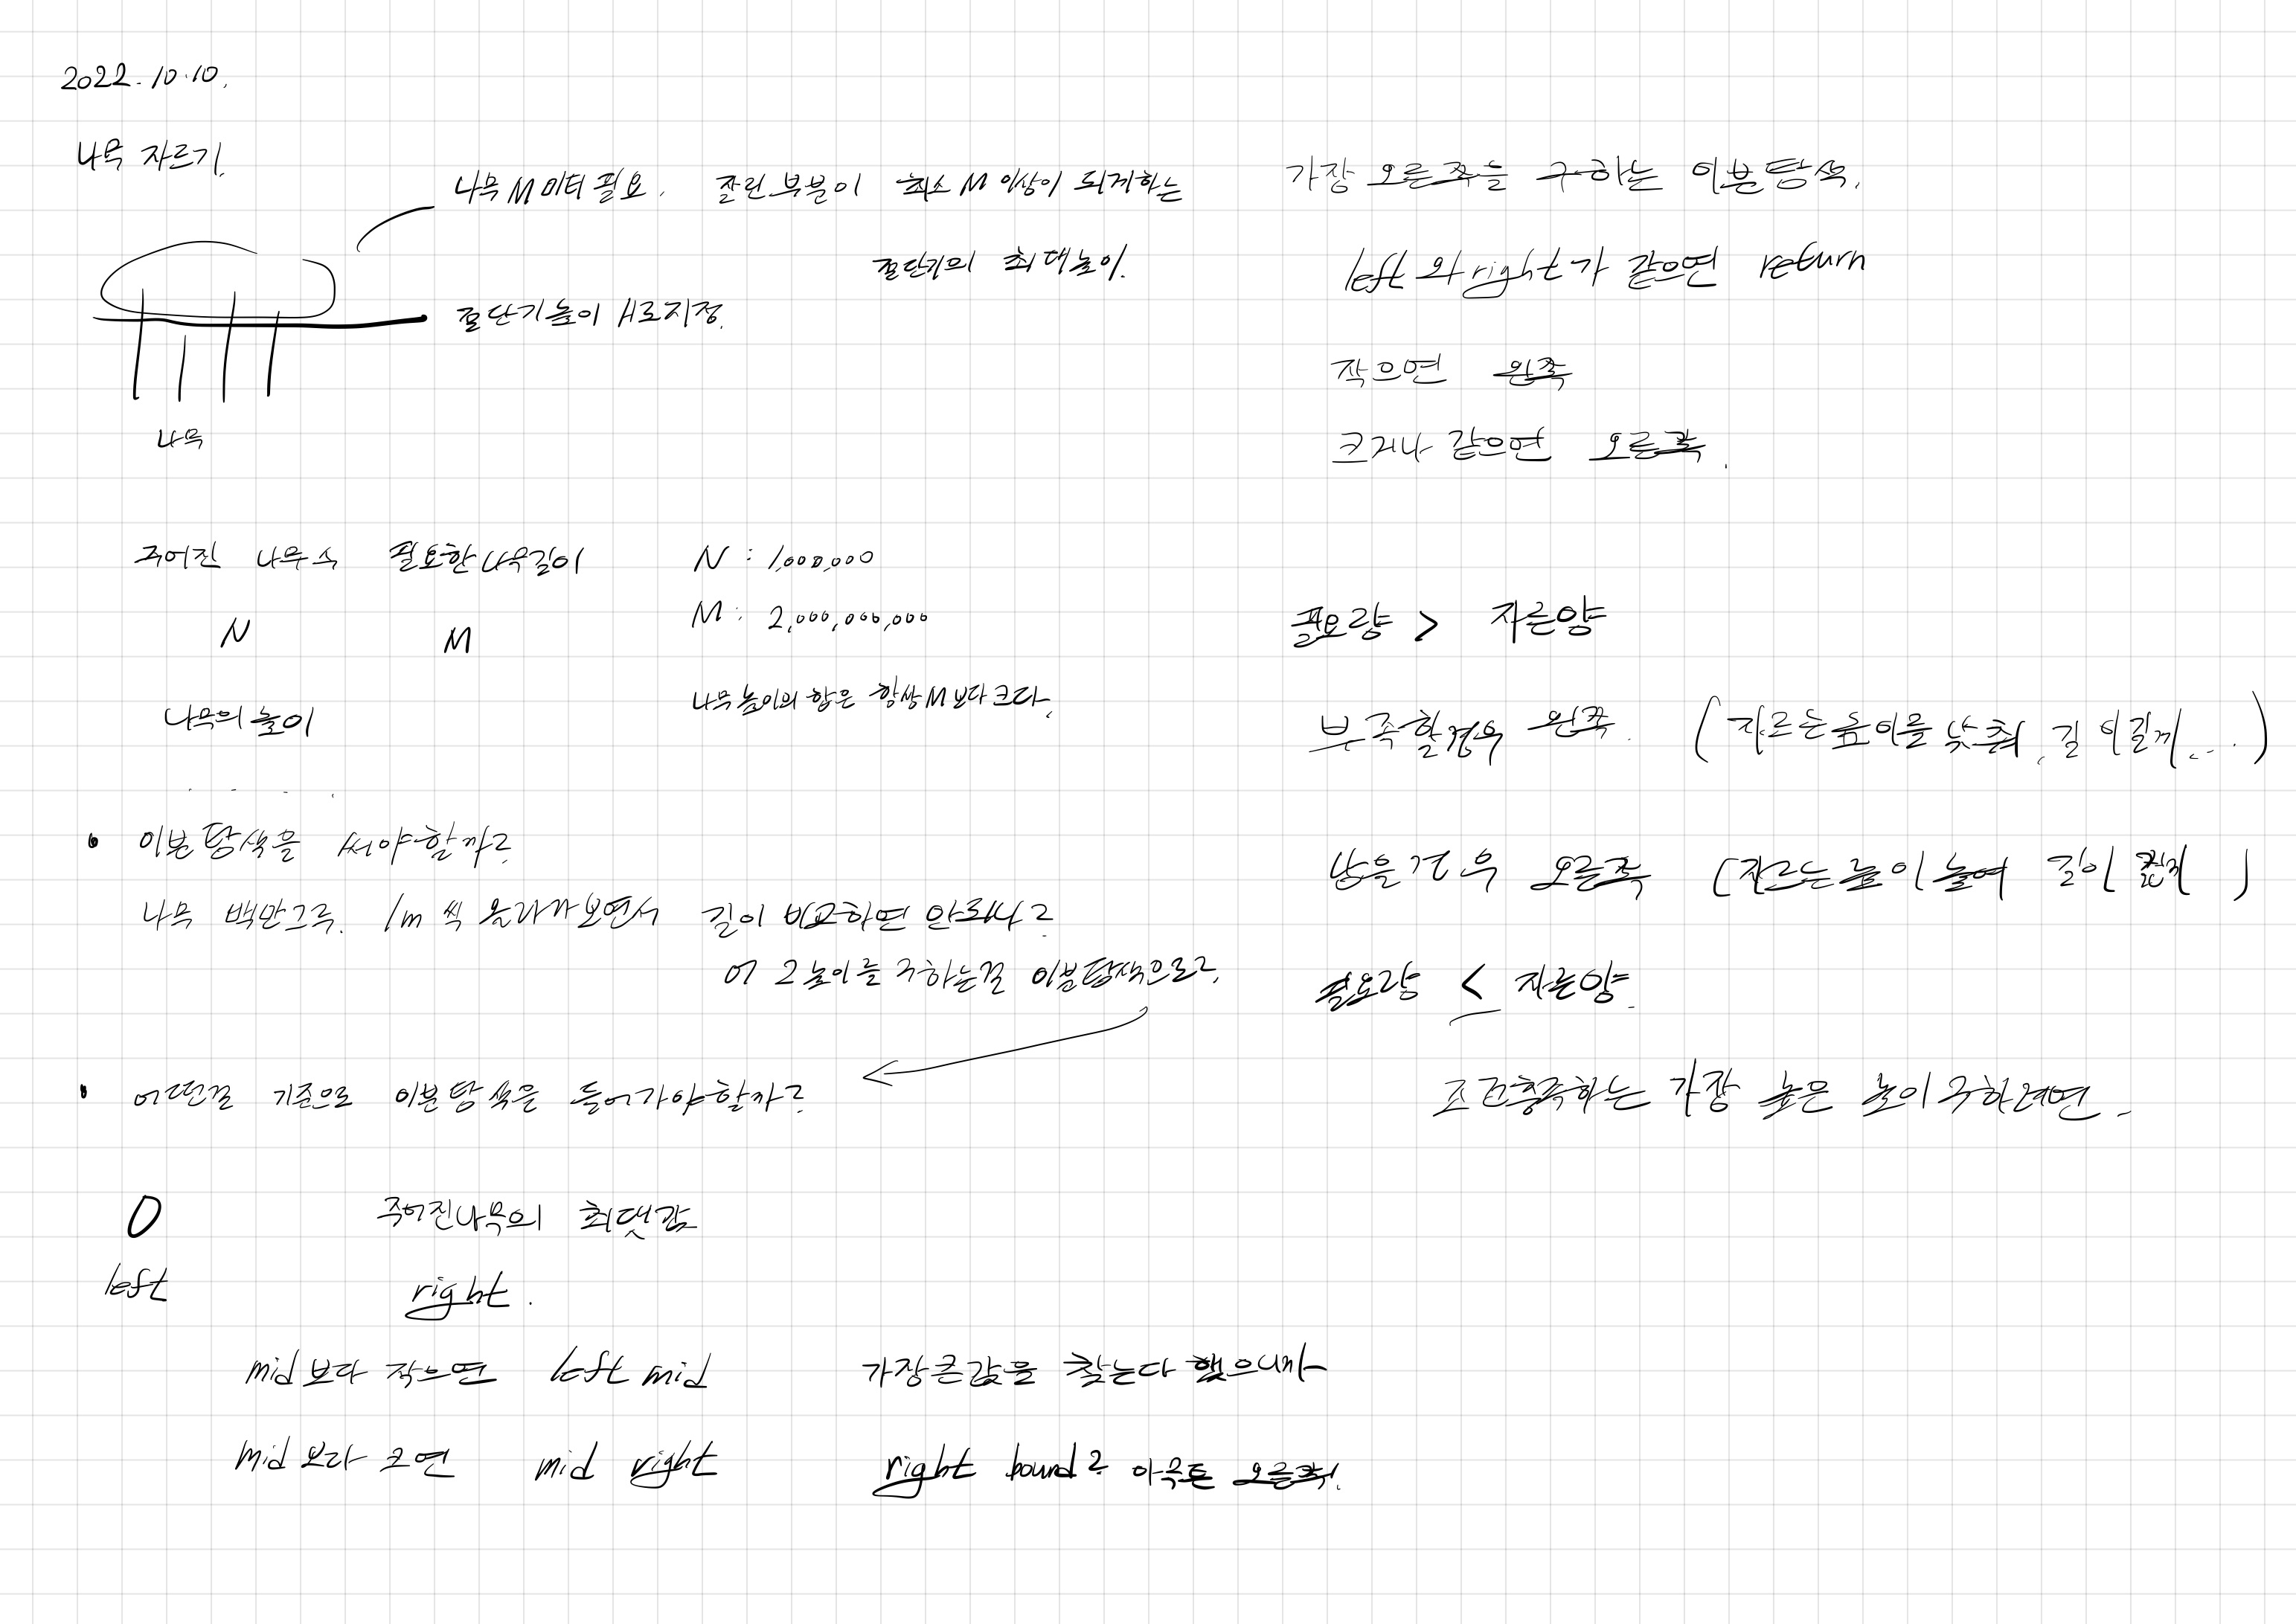 2022.10.10.
나무 자르기.
나무 M미터 필요. 잘린 부분이 최소 M 이상이 되게하는
절단기의 최대높이.
절단기높이 H로지정.
나무
주어진 나무 수 필요한 나무길이
N M
나무의 높이
N : 1,000,000
M : 2,000,000,000
나무 높이의 합은 항상 M보다 크다.
• 이분탐색을 써야할까?
나무 백만그루. 1m 씩 올라가보면서 길이 비교하면 안되나?
어 그 높이를 구하는걸 이분탐색으로?
• 어떤걸 기준으로 이분탐색을 들어가야할까?
0 주어진나무의 최댓값
left right.
mid 보다 작으면 left mid
mid 보다 크면 mid right
가장큰값을 찾는다 했으니까
right bound? 아무튼 오른쪽!
가장 오른쪽을 구하는 이분탐색.
left 와 right 가 같으면 return
작으면 왼쪽
크거나 같으면 오른쪽.
필요량 > 자른양
부족할경우 왼쪽. (자르는높이를 낮춰, 길이길게...)
남을경우 오른쪽 (자르는높이 높여 길이 짧게)
필요량 ≤ 자른양.
조건충족하는 가장 높은 높이구하려면.